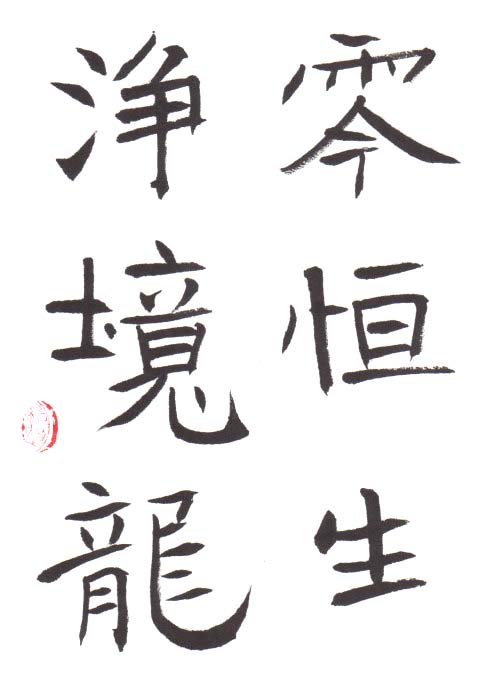 零恒生
浄境龍